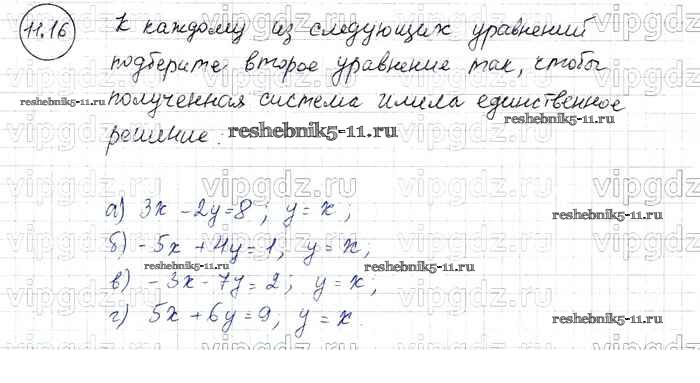 11.16 К каждому из следующих уравнений
подберите второе уравнение так, чтобы
полученная система имела единственное
решение.
а) 3x - 2y = 8; y = x;
б) -5x + 4y = 1, y = x;
в) -3x - 7y = 2; y = x;
г) 5x + 6y = 9, y = x.
reshebnik5-11.ru
reshebnik5-11.ru
reshebnik5-11.ru
reshebnik5-11.ru
reshebnik5-11.ru
reshebnik5-11.ru
reshebnik5-11.ru
vipgdz.ru